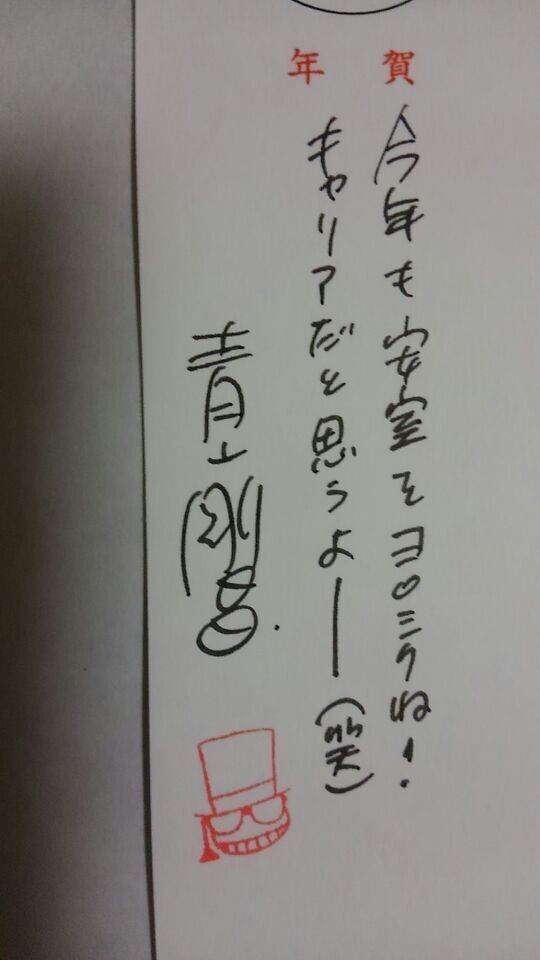 年賀
今年も安室をヨロシクね!
キャリアだと思うよー(笑)
青山剛昌